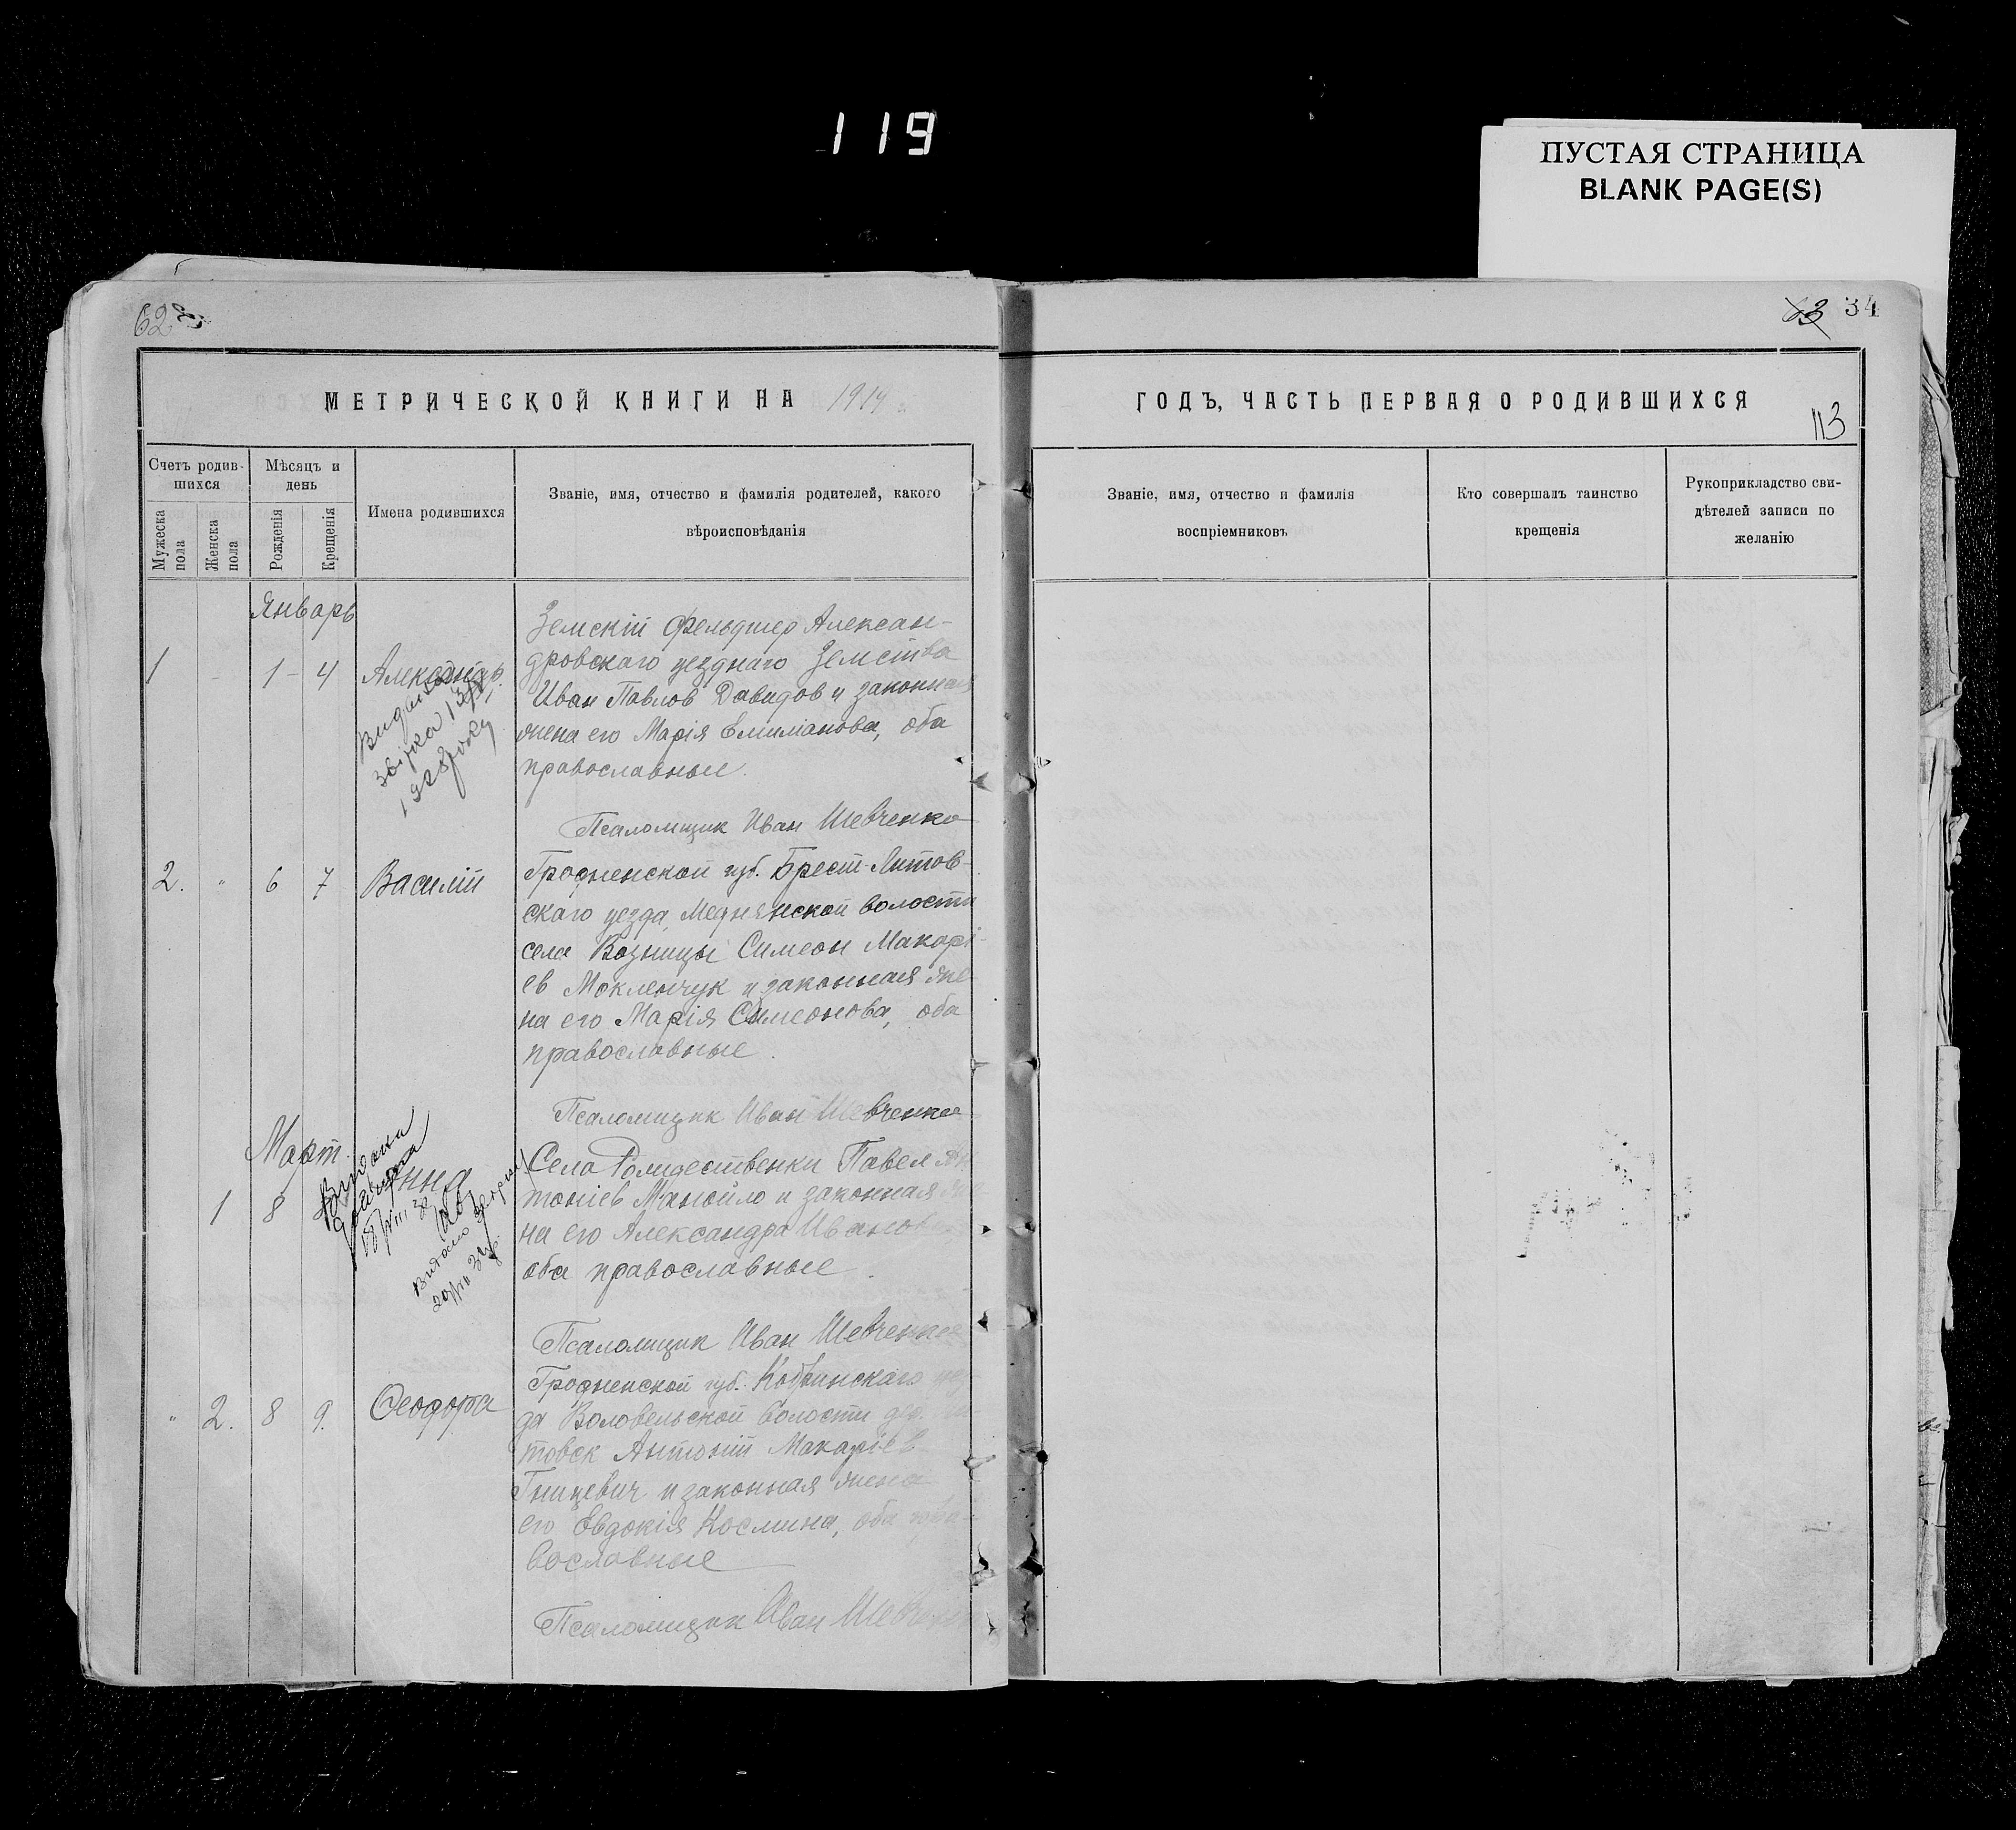 119
ПУСТАЯ СТРАНИЦА
BLANK PAGE(S)
62
63 34
МЕТРИЧЕСКОЙ КНИГИ НА 1919 г.
ГОДЪ, ЧАСТЬ ПЕРВАЯ О РОДИВШИХСЯ
113
Счетъ родив-
шихся
Мужеска
пола
Женска
пола
Мѣсяцъ и
день
Рожденія
Крещенія
Имена родившихся
Званіе, имя, отчество и фамилія родителей, какого
вѣроисповѣданія
Званіе, имя, отчество и фамилія
воспріемниковъ
Кто совершалъ таинство
крещенія
Рукоприкладство сви-
дѣтелей записи по
желанію
Январь
1 - 1 - 4 Александр.
Видана
1928 року
Земскій фельдшер Алексан-
дровскаго уезднаго Земства
Иван Павлов Давидов и законная
жена его Марія Емилианова, оба
православные.
Псаломщик Иван Шевченко
2. " 6 7 Василій
Гродненской губ. Брест-Литов-
скаго уезда, Меднянской волости
села Возницы Симеон Макарі-
ев Мокленчук и законная же-
на его Марія Симеонова, оба
православные.
Псаломщик Иван Шевченко
Март.
1 8 Анна
Видана
Видано
Села Рождественки Павел Ан-
тоніев Манойло и законная же-
на его Александра Иванова
оба православные.
Псаломщик Иван Шевченко
" 2. 8 9. Феодора
Гродненской губ. Кобринскаго уез-
да Воловельской волости дер.
товск Антоній Макаріев
Гницевич и законная жена
его Евдокія Косьмина, оба пра-
вославные
Псаломщик Иван Шевченко